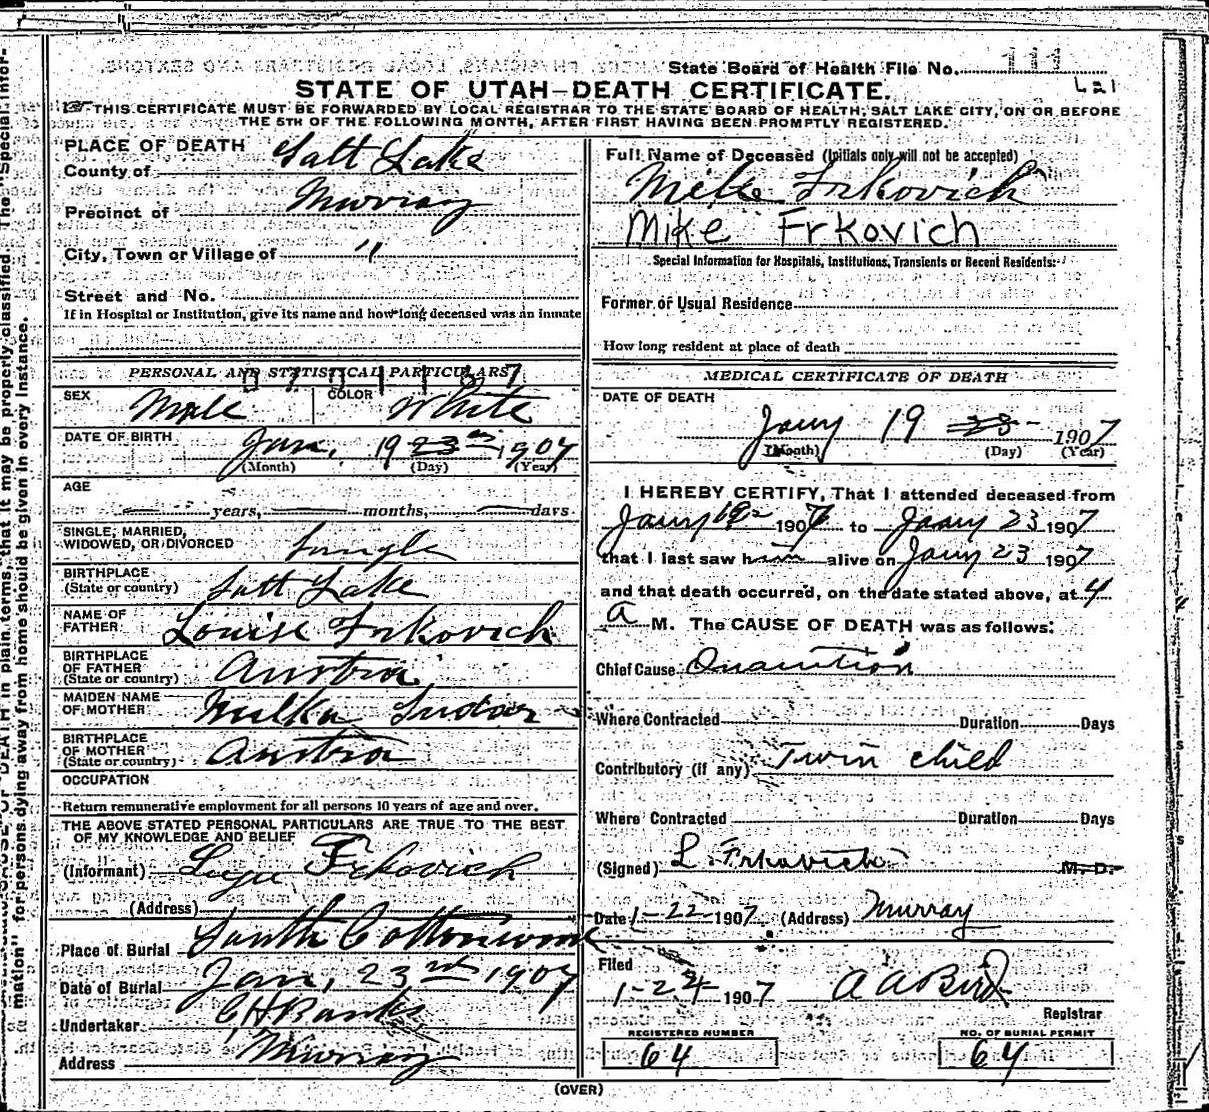 State Board of Health File No. 111
L21
STATE OF UTAH—DEATH CERTIFICATE.
THIS CERTIFICATE MUST BE FORWARDED BY LOCAL REGISTRAR TO THE STATE BOARD OF HEALTH, SALT LAKE CITY, ON OR BEFORE
THE 5TH OF THE FOLLOWING MONTH, AFTER FIRST HAVING BEEN PROMPTLY REGISTERED.
PLACE OF DEATH
County of Salt Lake
Precinct of Murray
City, Town or Village of "
Street and No.
If in Hospital or Institution, give its name and how long deceased was an inmate
PERSONAL AND STATISTICAL PARTICULARS
SEX Male COLOR White
DATE OF BIRTH Jan. 19 23rd 1907
(Month) (Day) (Year)
AGE
years, months, days
SINGLE, MARRIED,
WIDOWED, OR DIVORCED Single
BIRTHPLACE
(State or country) Salt Lake
NAME OF
FATHER Louise Frkovich
BIRTHPLACE
OF FATHER
(State or country) Austria
MAIDEN NAME
OF MOTHER Milka
BIRTHPLACE
OF MOTHER
(State or country) Austria
OCCUPATION
Return remunerative employment for all persons 10 years of age and over.
THE ABOVE STATED PERSONAL PARTICULARS ARE TRUE TO THE BEST
OF MY KNOWLEDGE AND BELIEF
(Informant) Frkovich
(Address)
Place of Burial South Cottonwood
Date of Burial Jan, 23rd 1907
Undertaker C H Banks
Address Murray
Full Name of Deceased (Initials only will not be accepted)
Mike Frkovich
Mike Frkovich
Special Information for Hospitals, Institutions, Transients or Recent Residents:
Former or Usual Residence
How long resident at place of death
MEDICAL CERTIFICATE OF DEATH
DATE OF DEATH
Jany 19 23 1907
(Month) (Day) (Year)
I HEREBY CERTIFY, That I attended deceased from
Jany 19 1907 to Jany 23 1907
that I last saw him alive on Jany 23 1907
and that death occurred, on the date stated above, at 4
a M. The CAUSE OF DEATH was as follows:
Chief Cause Inanition
Where Contracted Duration Days
Contributory (if any) Twin child
Where Contracted Duration Days
(Signed) L. Frkovich M. D.
Date 1-22-1907 (Address) Murray
Filed
1-24 1907 A A Bird
Registrar
REGISTERED NUMBER
64
NO. OF BURIAL PERMIT
64
(OVER)
DEATH in plain terms, that it may be properly classified. The "Special Infor-
mation" for persons dying away from home should be given in every instance.